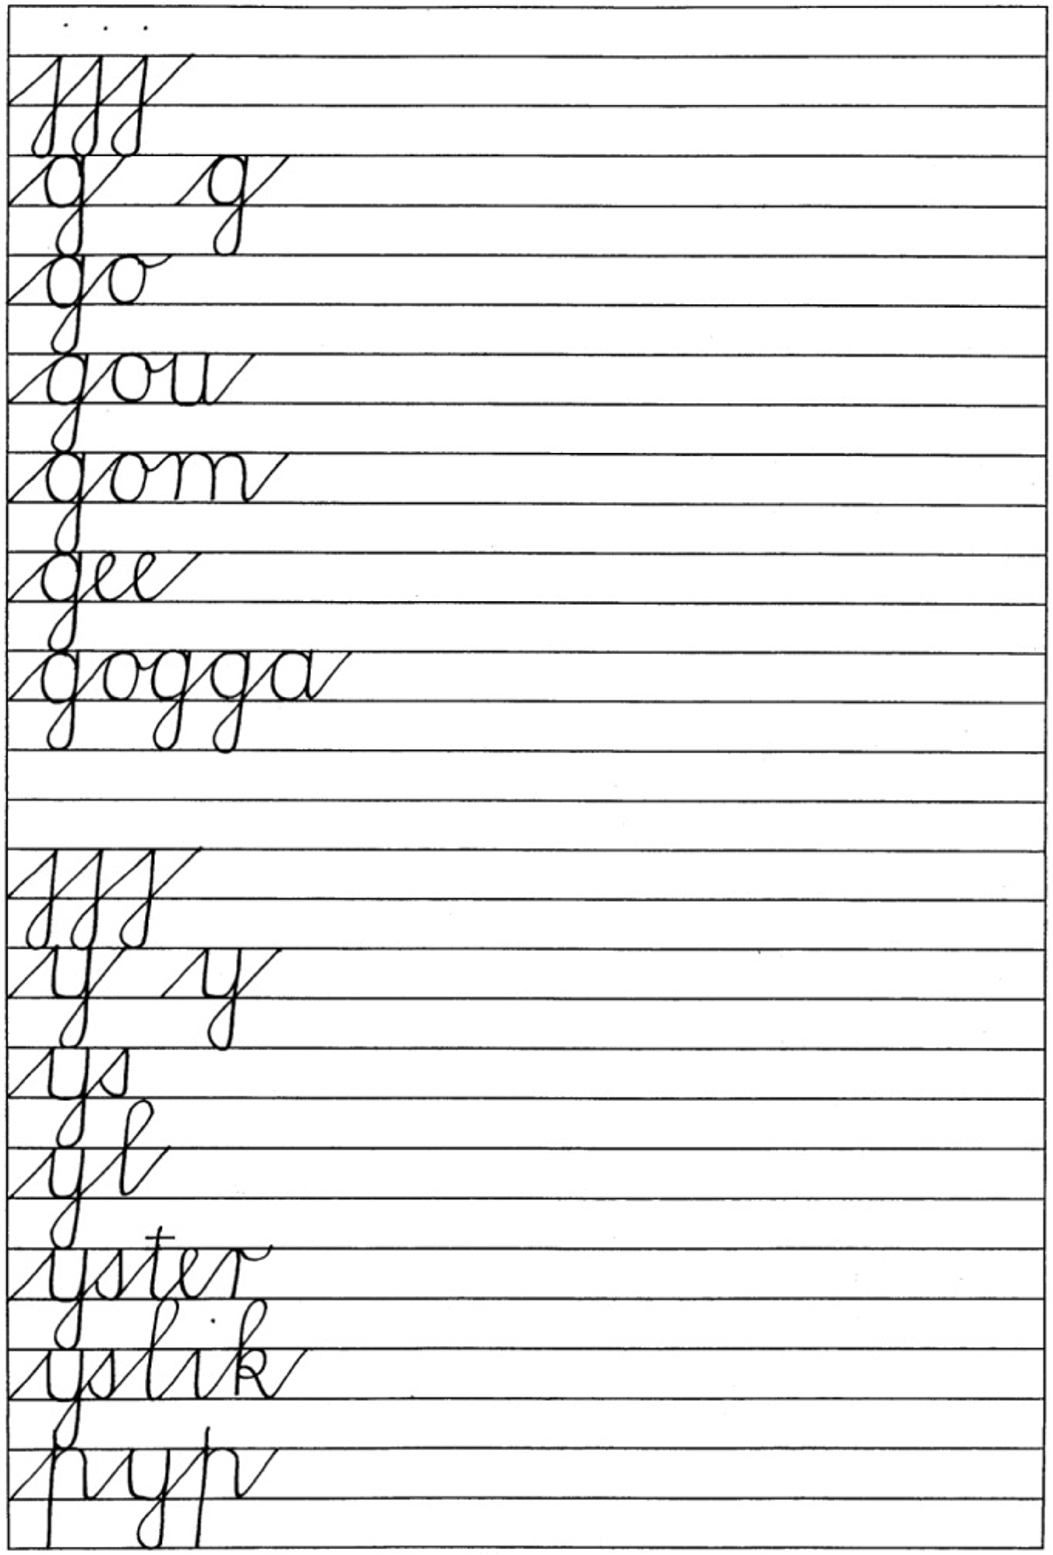 jjj
g g
go
gou
gom
gee
gogga
jjj
y y
ys
yl
yster
yslik
pyp